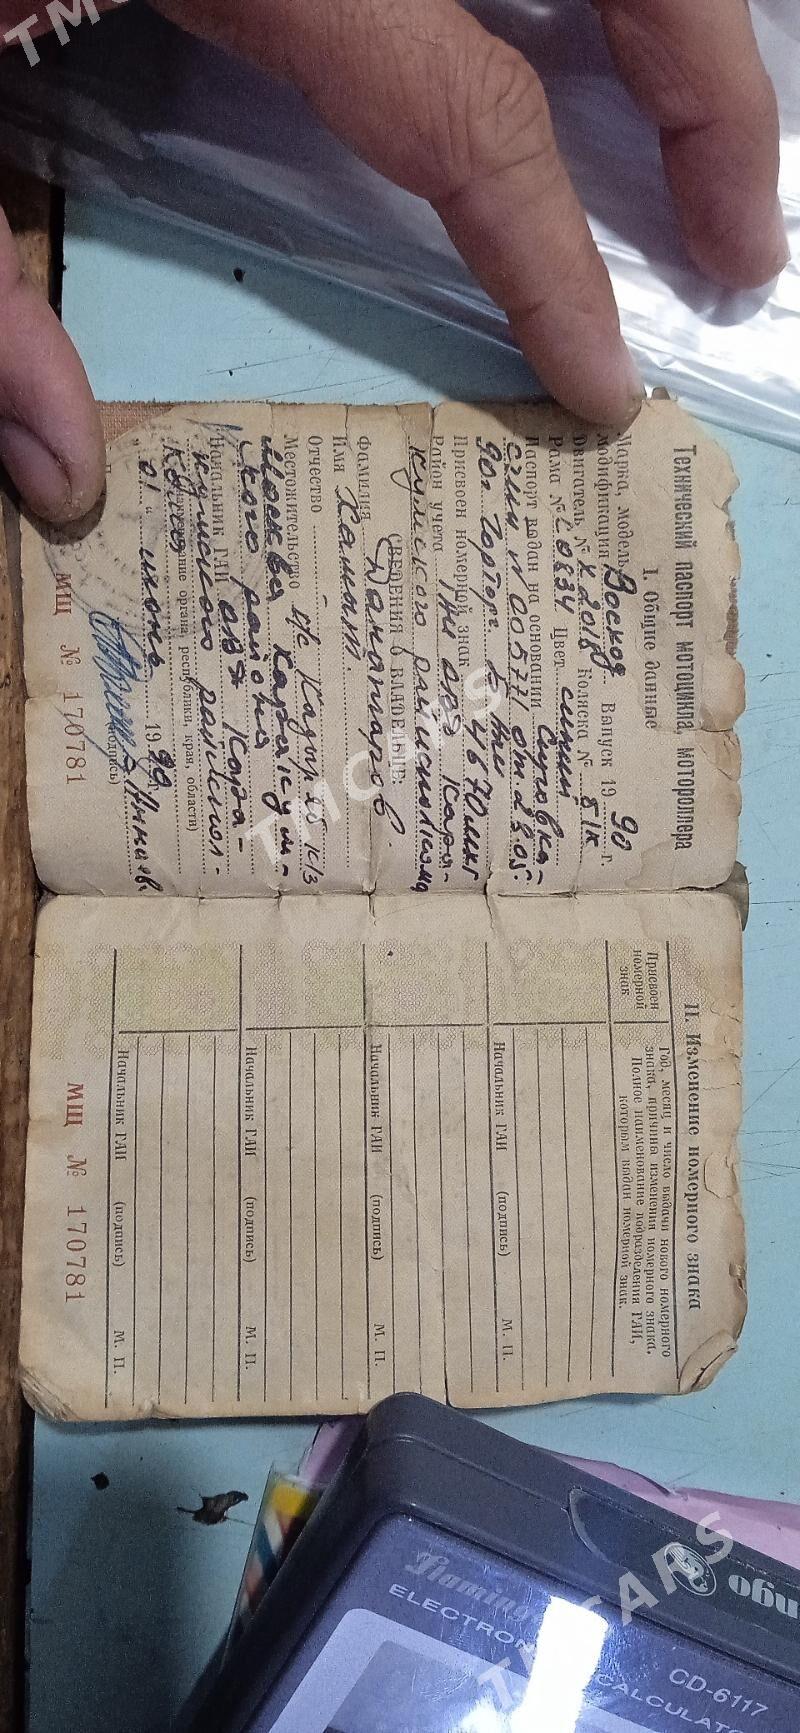 Технический паспорт мотоцикла, мотороллера
I. Общие данные
Марка, модель,
модификация Восход Выпуск 19 90 г.
Двигатель № Коляска № б/к
Рама № Цвет синий
Паспорт выдан на основании Справка-
счет № 005771 от 23.05.
90г. Горторг
Присвоен номерной знак 4670
Район учета
кумского райисполкома
СВЕДЕНИЯ О ВЛАДЕЛЬЦЕ:
Фамилия
Имя
Отчество
Местожительство
Москва Каракум-
ского района
Начальник ГАИ ОВД Кара-
кумского райиспол-
кома
(наименование органа, республики, края, области)
"01" июнь 1990
(подпись)
МЩ № 170781
II. Изменение номерного знака
Присвоен
номерной
знак
Год, месяц и число выдачи нового номерного
знака, причины изменения номерного знака.
Полное наименование подразделения ГАИ,
которым выдан номерной знак.
Начальник ГАИ (подпись) М. П.
Начальник ГАИ (подпись) М. П.
Начальник ГАИ (подпись) М. П.
Начальник ГАИ (подпись) М. П.
МЩ № 170781
Flamingo
ELECTRONIC CALCULATOR
CD-6117
ngo
TMCARS
TMCARS
TMCARS